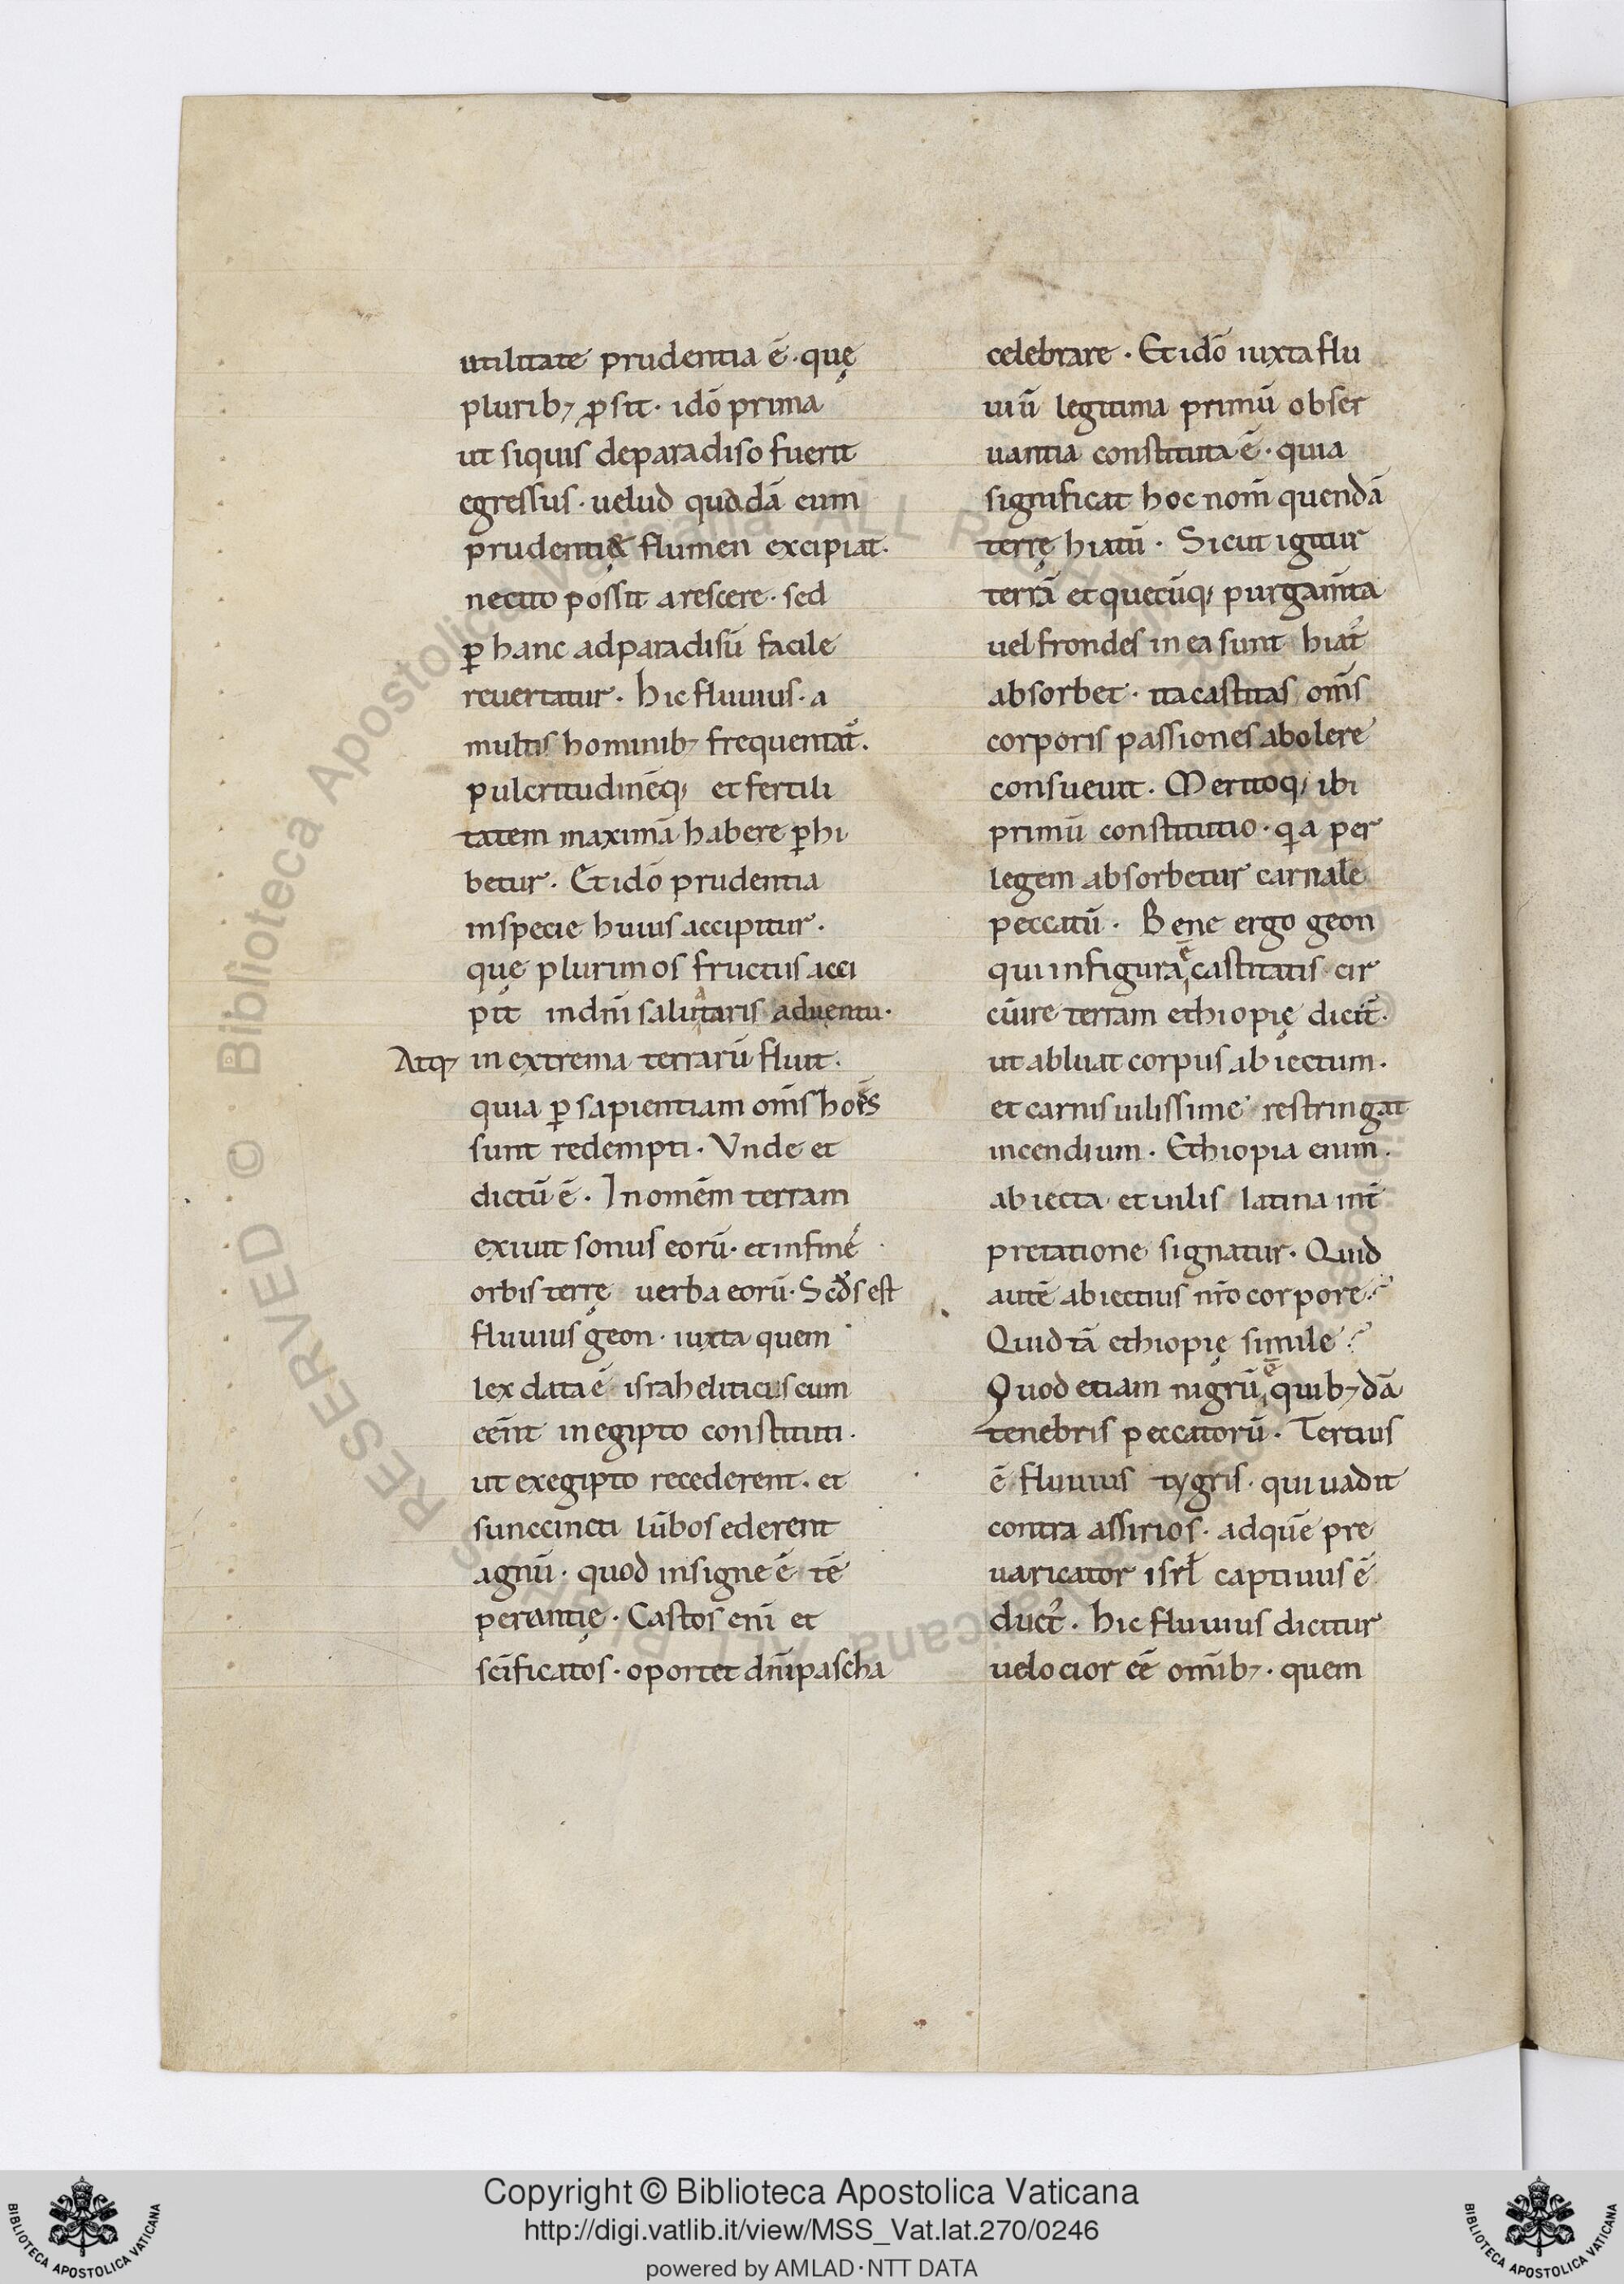 utilitate prudentia ē · quę
plurib; ꝓsit · idō prima
ut siquis deparadiso fuerit
egressus · uelud quadā eum
prudentię flumen excipiat ·
necito possit arescere · sed
ꝑ hanc adparadisū facile
reuertatur · hic fluuius · a
multis hominib; frequentat᷑ ·
pulcritudinēq; et fertili
tatem maximā habere ꝑhi
betur · Et idō prudentia
inspecie huius accipitur ·
quę plurimos fructus acci
pit indnī salutaris aduentu ·
Atq; in extrema terrarū fluit ·
quia ꝑ sapientiam om̄s hoēs
sunt redempti · Vnde et
dictū ē · Inomēm terram
exiuit sonus eorū · et infinē
orbis terrę uerba eorū · Scd̄s est
fluuius geon · iuxta quem
lex data ē israheliticis cum
eēnt inegipto constituti ·
ut exegipto recederent · et
sunccincti lūbos ederent
agnū · quod insigne ē tē
perantię · Castos enī et
scīficatos · oportet dnī pascha
celebrare · Et idō iuxta flu
uiū legitima primū obser
uantia constituta ē · quia
significat hoc nom̄ quendā
terrę hiatū · Sicut igitur
terrā et quecūq; purgam̄ta
uel frondes in ea sunt hiat᷑
absorbet · ita castitas om̄s
corporis passiones abolere
consueuit · Meritoq; ibi
primū constitutio · qa per
legem absorbetur carnale
peccatū · Bene ergo geon
qui infigura ē castitatis cir
cūire terram ethiopię dicit᷑ ·
ut abluat corpus abiectum ·
et carnis uilissime restringat
incendium · Ethiopia enim ·
abiecta et uilis latina int̄
pretatione signatur · Quid
autē abiectius nr̄o corpore?
Quid tā ethiopię simile?
Quod etiam nigrū ē quib;dā
tenebris peccatorū · Tertius
ē fluuius tygris · qui uadit
contra assirios · ad quē pre
uaricator isrł captiuus ē
duct᷑ · hic fluuius dicitur
uelocior eē om̄ib; · quem
Copyright © Biblioteca Apostolica Vaticana
http://digi.vatlib.it/view/MSS_Vat.lat.270/0246
powered by AMLAD·NTT DATA
BIBLIOTECA APOSTOLICA VATICANA
BIBLIOTECA APOSTOLICA VATICANA